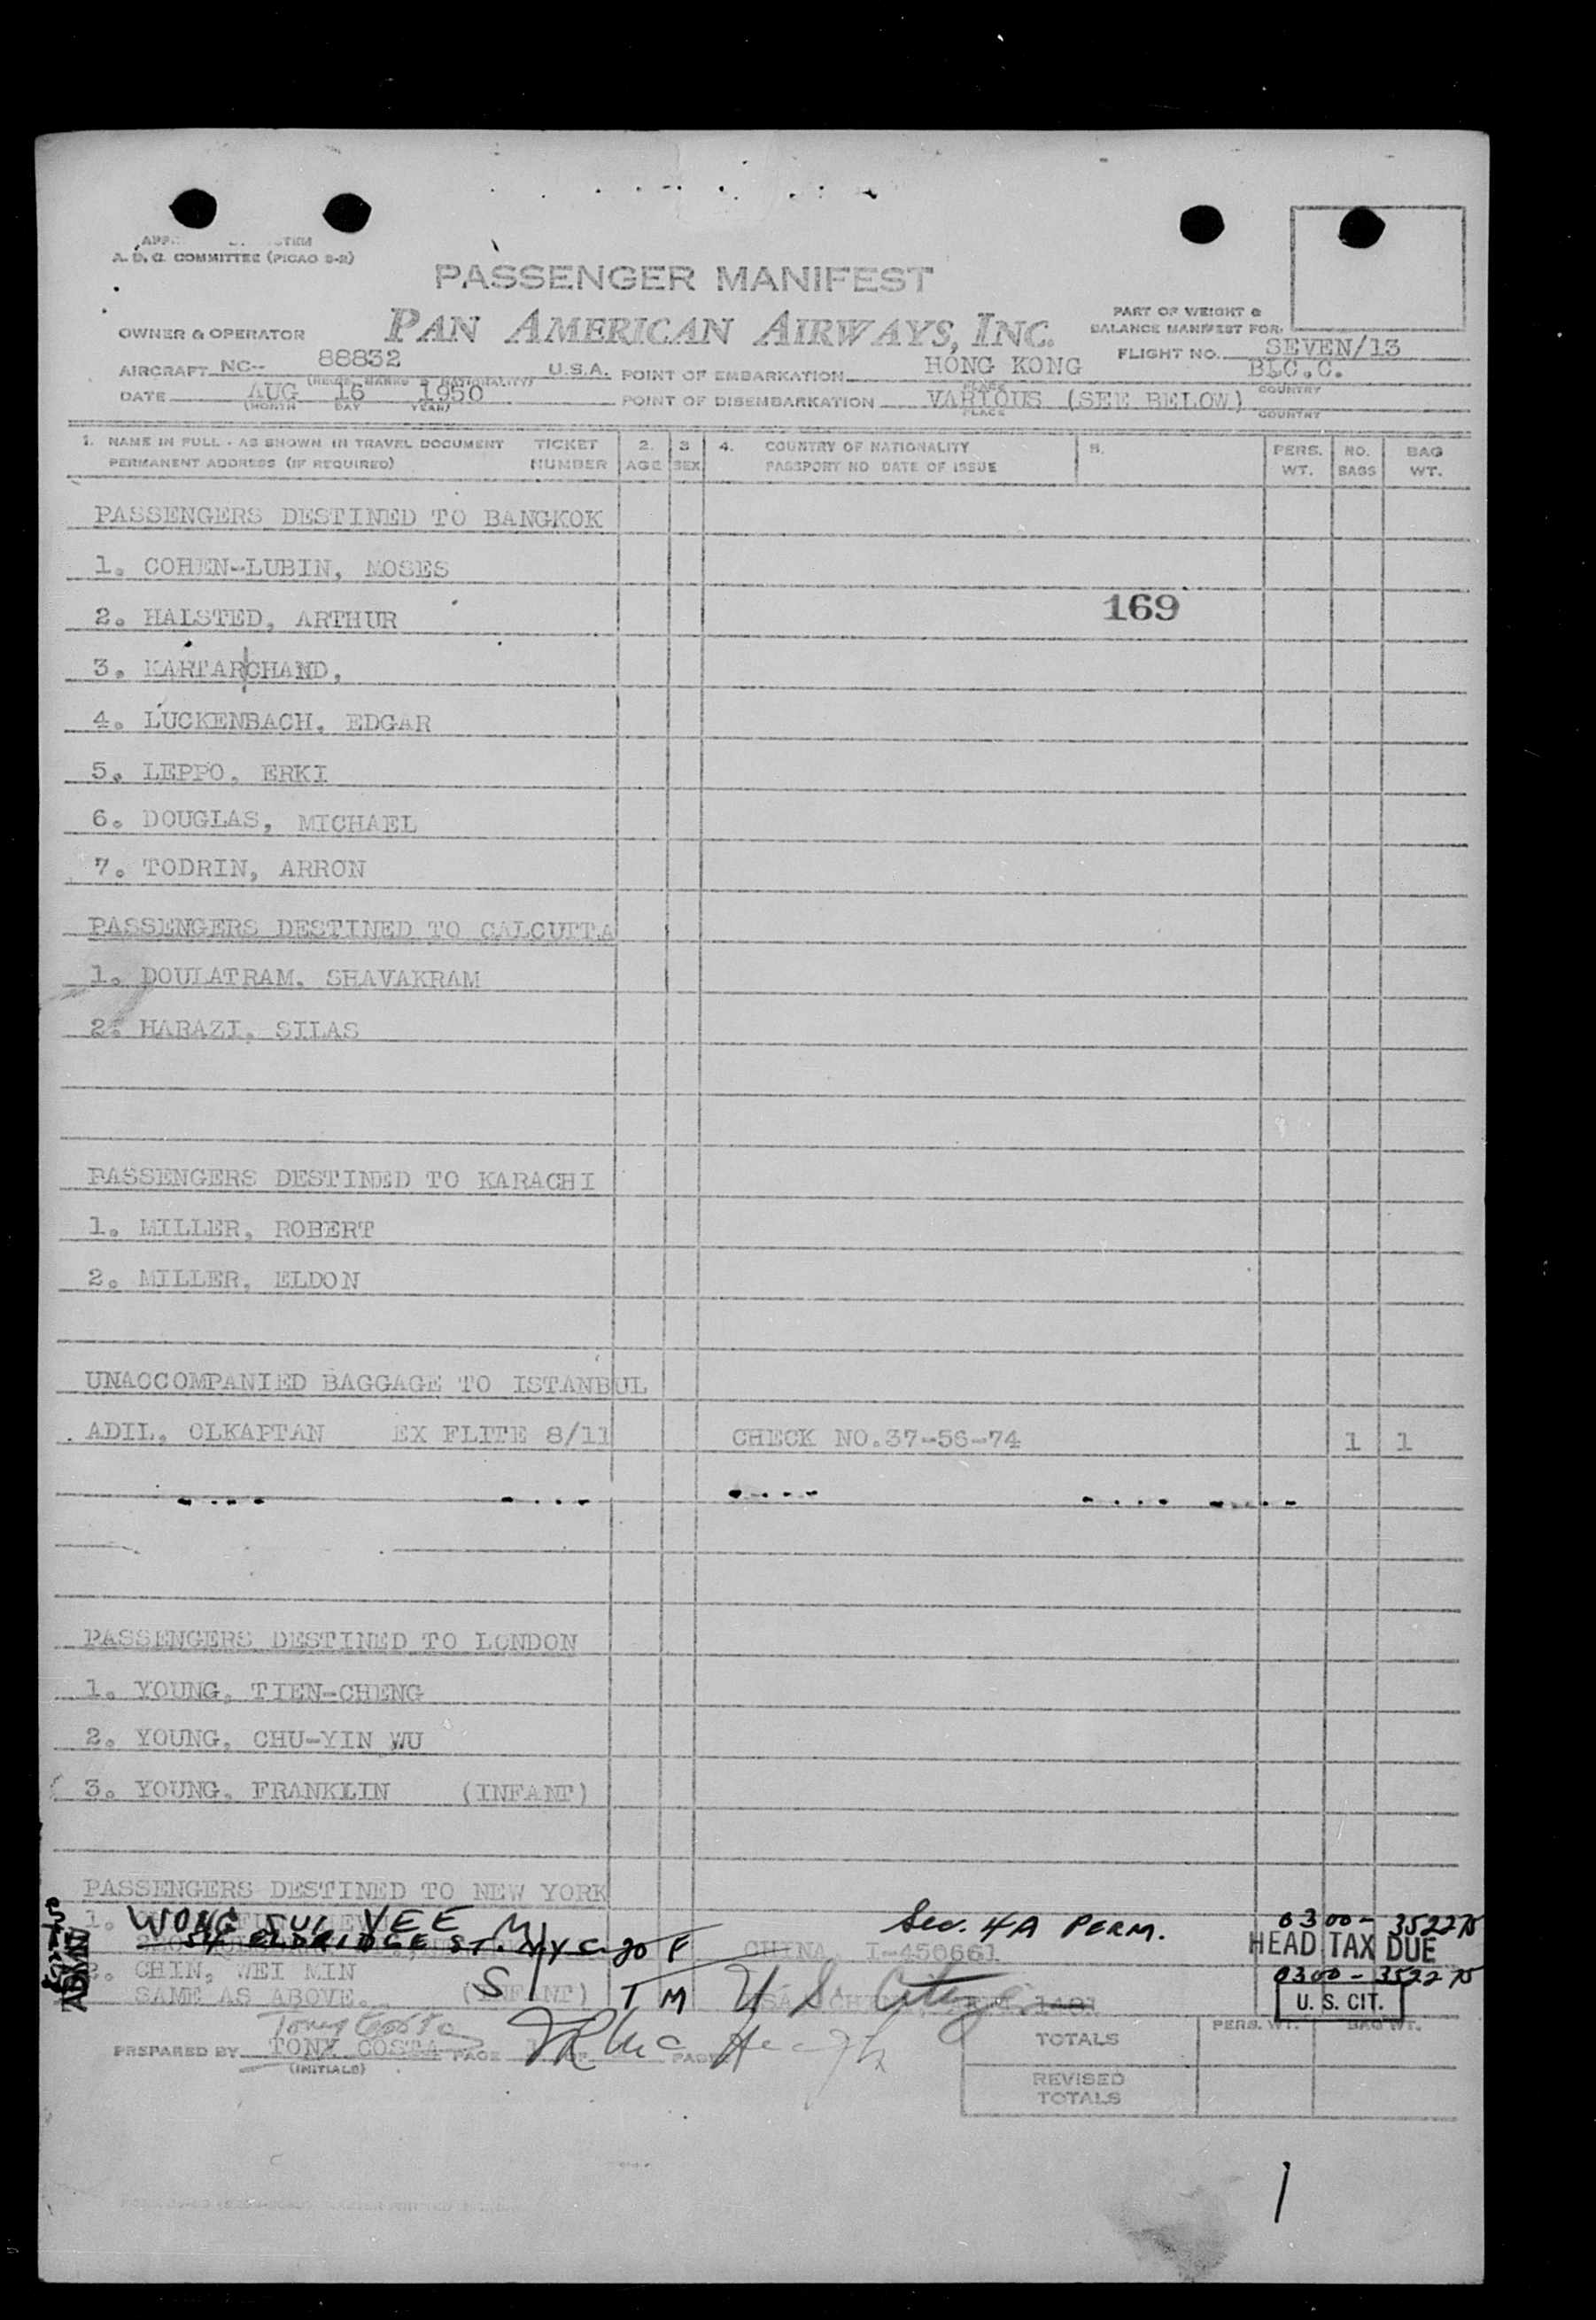 A. D. C. COMMITTEE (PICAO S-2)
PASSENGER MANIFEST
PAN AMERICAN AIRWAYS, INC.
OWNER & OPERATOR
PART OF WEIGHT &
BALANCE MANIFEST FOR:
FLIGHT NO. SEVEN/13
AIRCRAFT NC-- 88832 U.S.A. POINT OF EMBARKATION HONG KONG
PLACE COUNTRY
DATE AUG 16 1950 POINT OF DISEMBARKATION VARIOUS (SEE BELOW)
(MONTH DAY YEAR) PLACE COUNTRY
1. NAME IN FULL - AS SHOWN IN TRAVEL DOCUMENT TICKET 2. 3 4. COUNTRY OF NATIONALITY 5. PERS. NO. BAG
PERMANENT ADDRESS (IF REQUIRED) NUMBER AGE SEX PASSPORT NO DATE OF ISSUE WT. BAGS WT.
PASSENGERS DESTINED TO BANGKOK
1. COHEN-LUBIN, MOSES
169
2. HALSTED, ARTHUR
3. KARTARCHAND,
4. LUCKENBACH, EDGAR
5. LEPPO, ERKI
6. DOUGLAS, MICHAEL
7. TODRIN, ARRON
PASSENGERS DESTINED TO CALCUTTA
1. DOULATRAM. SHAVAKRAM
2. HARAZI, SILAS
PASSENGERS DESTINED TO KARACHI
1. MILLER, ROBERT
2. MILLER, ELDON
UNACCOMPANIED BAGGAGE TO ISTANBUL
ADIL, OLKAPTAN EX FLITE 8/11 CHECK NO.37-56-74 1 1
PASSENGERS DESTINED TO LONDON
1. YOUNG, TIEN-CHENG
2. YOUNG, CHU-YIN WU
3. YOUNG, FRANKLIN (INFANT)
PASSENGERS DESTINED TO NEW YORK
1. WONG SUI YEE M Sec. 4A PERM. 0300-352275
54 ELDRIDGE ST. NYC 20 F CHINA, I-450661 HEAD TAX DUE
2. CHIN, WEI MIN S 0300-352275
SAME AS ABOVE. (INFANT) M U S Citizen U. S. CIT.
Tony Costa
PREPARED BY TONY COSTA PAGE PAGE TOTALS PERS. WT. BAG WT.
(INITIALS)
REVISED
TOTALS
1